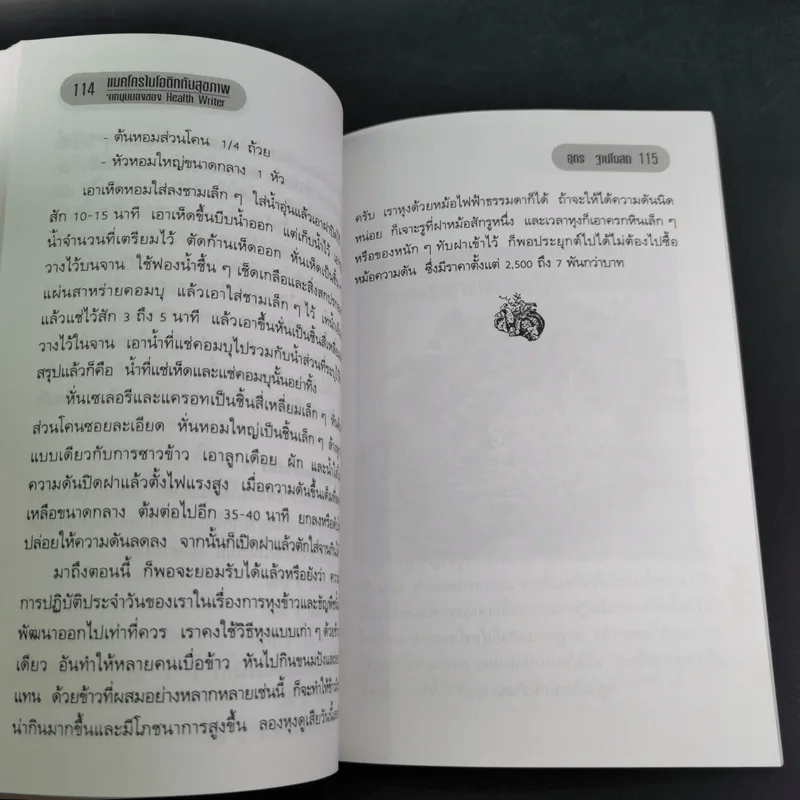 114 แมคโครไบโอติกกับสุขภาพ
จากมุมมองของ Health Writer
- ต้นหอมส่วนโคน 1/4 ถ้วย
- หัวหอมใหญ่ขนาดกลาง 1 หัว
เอาเห็ดหอมใส่ลงชามเล็ก ๆ ใส่น้ำอุ่นแล้วเอาฝาปิดไว้
สัก 10-15 นาที เอาเห็ดขึ้นบีบน้ำออก แต่เก็บน้ำไว้
น้ำจำนวนที่เตรียมไว้ ตัดก้านเห็ดออก หั่นเห็ดเป็นชิ้น
วางไว้บนจาน ใช้ฟองน้ำชื้น ๆ เช็ดเกลือและสิ่งสกปรก
แผ่นสาหร่ายคอมบุ แล้วเอาใส่ชามเล็ก ๆ ไว้ เทน้ำ
แล้วแช่ไว้สัก 3 ถึง 5 นาที แล้วเอาขึ้นหั่นเป็นชิ้นสี่เหลี่ยม
วางไว้ในจาน เอาน้ำที่แช่คอมบุไปรวมกับน้ำส่วนที่ระบุไว้
สรุปแล้วก็คือ น้ำที่แช่เห็ดและแช่คอมบุนั้นอย่าทิ้ง
หั่นเซเลอรีและแครอทเป็นชิ้นสี่เหลี่ยมเล็ก ๆ
ส่วนโคนซอยละเอียด หั่นหอมใหญ่เป็นชิ้นเล็ก ๆ
แบบเดียวกับการซาวข้าว เอาลูกเดือย ผัก และน้ำ
ความดันปิดฝาแล้วตั้งไฟแรงสูง เมื่อความดันขึ้นเต็มที่
เหลือขนาดกลาง ต้มต่อไปอีก 35-40 นาที ยกลงหรือ
ปล่อยให้ความดันลดลง จากนั้นก็เปิดฝาแล้วตักใส่จาน
มาถึงตอนนี้ ก็พอจะยอมรับได้แล้วหรือยังว่า
การปฏิบัติประจำวันของเราในเรื่องการหุงข้าวและธัญพืช
พัฒนาออกไปเท่าที่ควร เราคงใช้วิธีหุงแบบเก่า ๆ ด้วยข้าว
เดียว อันทำให้หลายคนเบื่อข้าว หันไปกินขนมปังและ
แทน ด้วยข้าวที่ผสมอย่างหลากหลายเช่นนี้ ก็จะทำให้ข้าว
น่ากินมากขึ้นและมีโภชนาการสูงขึ้น ลองหุงดูเสียวันนี้
อุดร ฐาปโนสถ 115
ครับ เราหุงด้วยหม้อไฟฟ้าธรรมดาก็ได้ ถ้าจะให้ได้ความดันนิด
หน่อย ก็เจาะรูที่ฝาหม้อสักรูหนึ่ง และเวลาหุงก็เอาครกหินเล็ก ๆ
หรือของหนัก ๆ ทับฝาเข้าไว้ ก็พอประยุกต์ไปได้ไม่ต้องไปซื้อ
หม้อความดัน ซึ่งมีราคาตั้งแต่ 2,500 ถึง 7 พันกว่าบาท